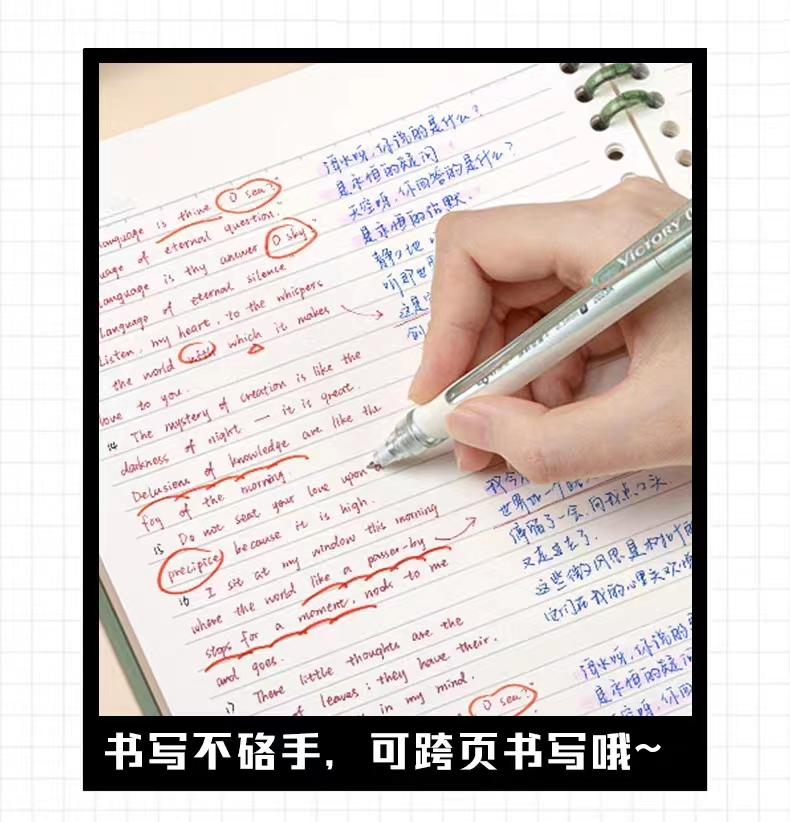 language is thine O sea?
uage of eternal question."
language is thy answer O sky?"
Language of eternal silence
Listen, my heart, to the whispers
the world with which it makes
love to you.
14 The mystery of creation is like the
darkness of night — it is great.
Delusions of knowledge are like the
fog of the morning.
15 Do not seat your love upon a
precipice because it is high.
16 I sit at my window this morning
where the world like a passer-by
stops for a moment, nods to me
and goes.
17 There little thoughts are the
of leaves; they have their.
in my mind.
O sea?
海水呀,你说的是什么?
是永恒的疑问
天空呀,你回答的是什么?
是永恒的沉默.
静心地
听那世
这是
创
我今
世界如一个
停留了一会,向我点点头
又走过去了.
这些微风思是树叶的
它们在我的心里欢
海水呀,你说的是
是永恒的疑问
天空呀,你回
VICTORY
书写不硌手,可跨页书写哦~